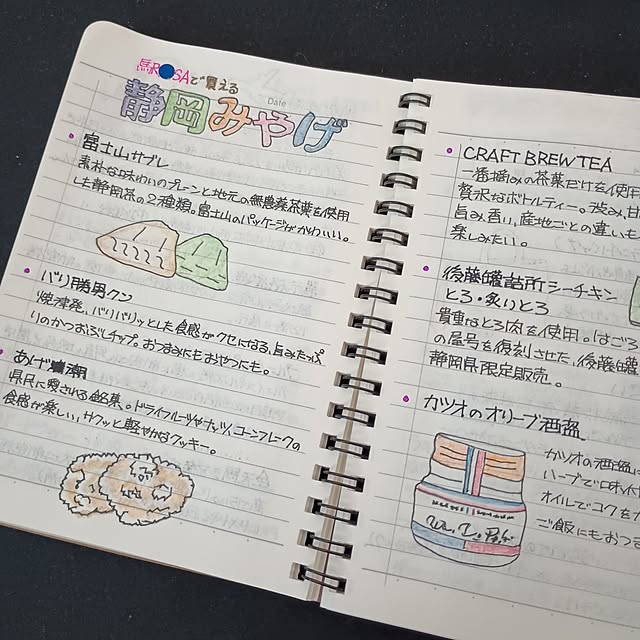 駅ROSAで買える
静岡みやげ
Date
富士山サブレ
素朴な味わいのプレーンと地元の無農薬茶葉を使用
した静岡茶の2種類。富士山のパッケージがかわいい。
バリ勝男クン
焼津発。バリバリッとした食感がクセになる、旨みたっぷ
りのかつおぶしチップ。おつまみにもおやつにも。
あげ潮
県民に愛される銘菓。ドライフルーツやナッツ、コーンフレークの
食感が楽しい、サクッと軽やかなクッキー。
CRAFT BREW TEA
一番摘みの茶葉だけを使用
贅沢なボトルティー。渋み、甘
旨み、香り、産地ごとの違いも
楽しみたい。
後藤罐詰所 シーチキン
とろ・炙りとろ
貴重なとろ肉を使用。はごろ
の屋号を復刻させた、後藤罐
静岡県限定販売。
カツオのオリーブ酒盗
カツオの酒盗に
ハーブで口味付
オイルでコクを
ご飯にもおつま